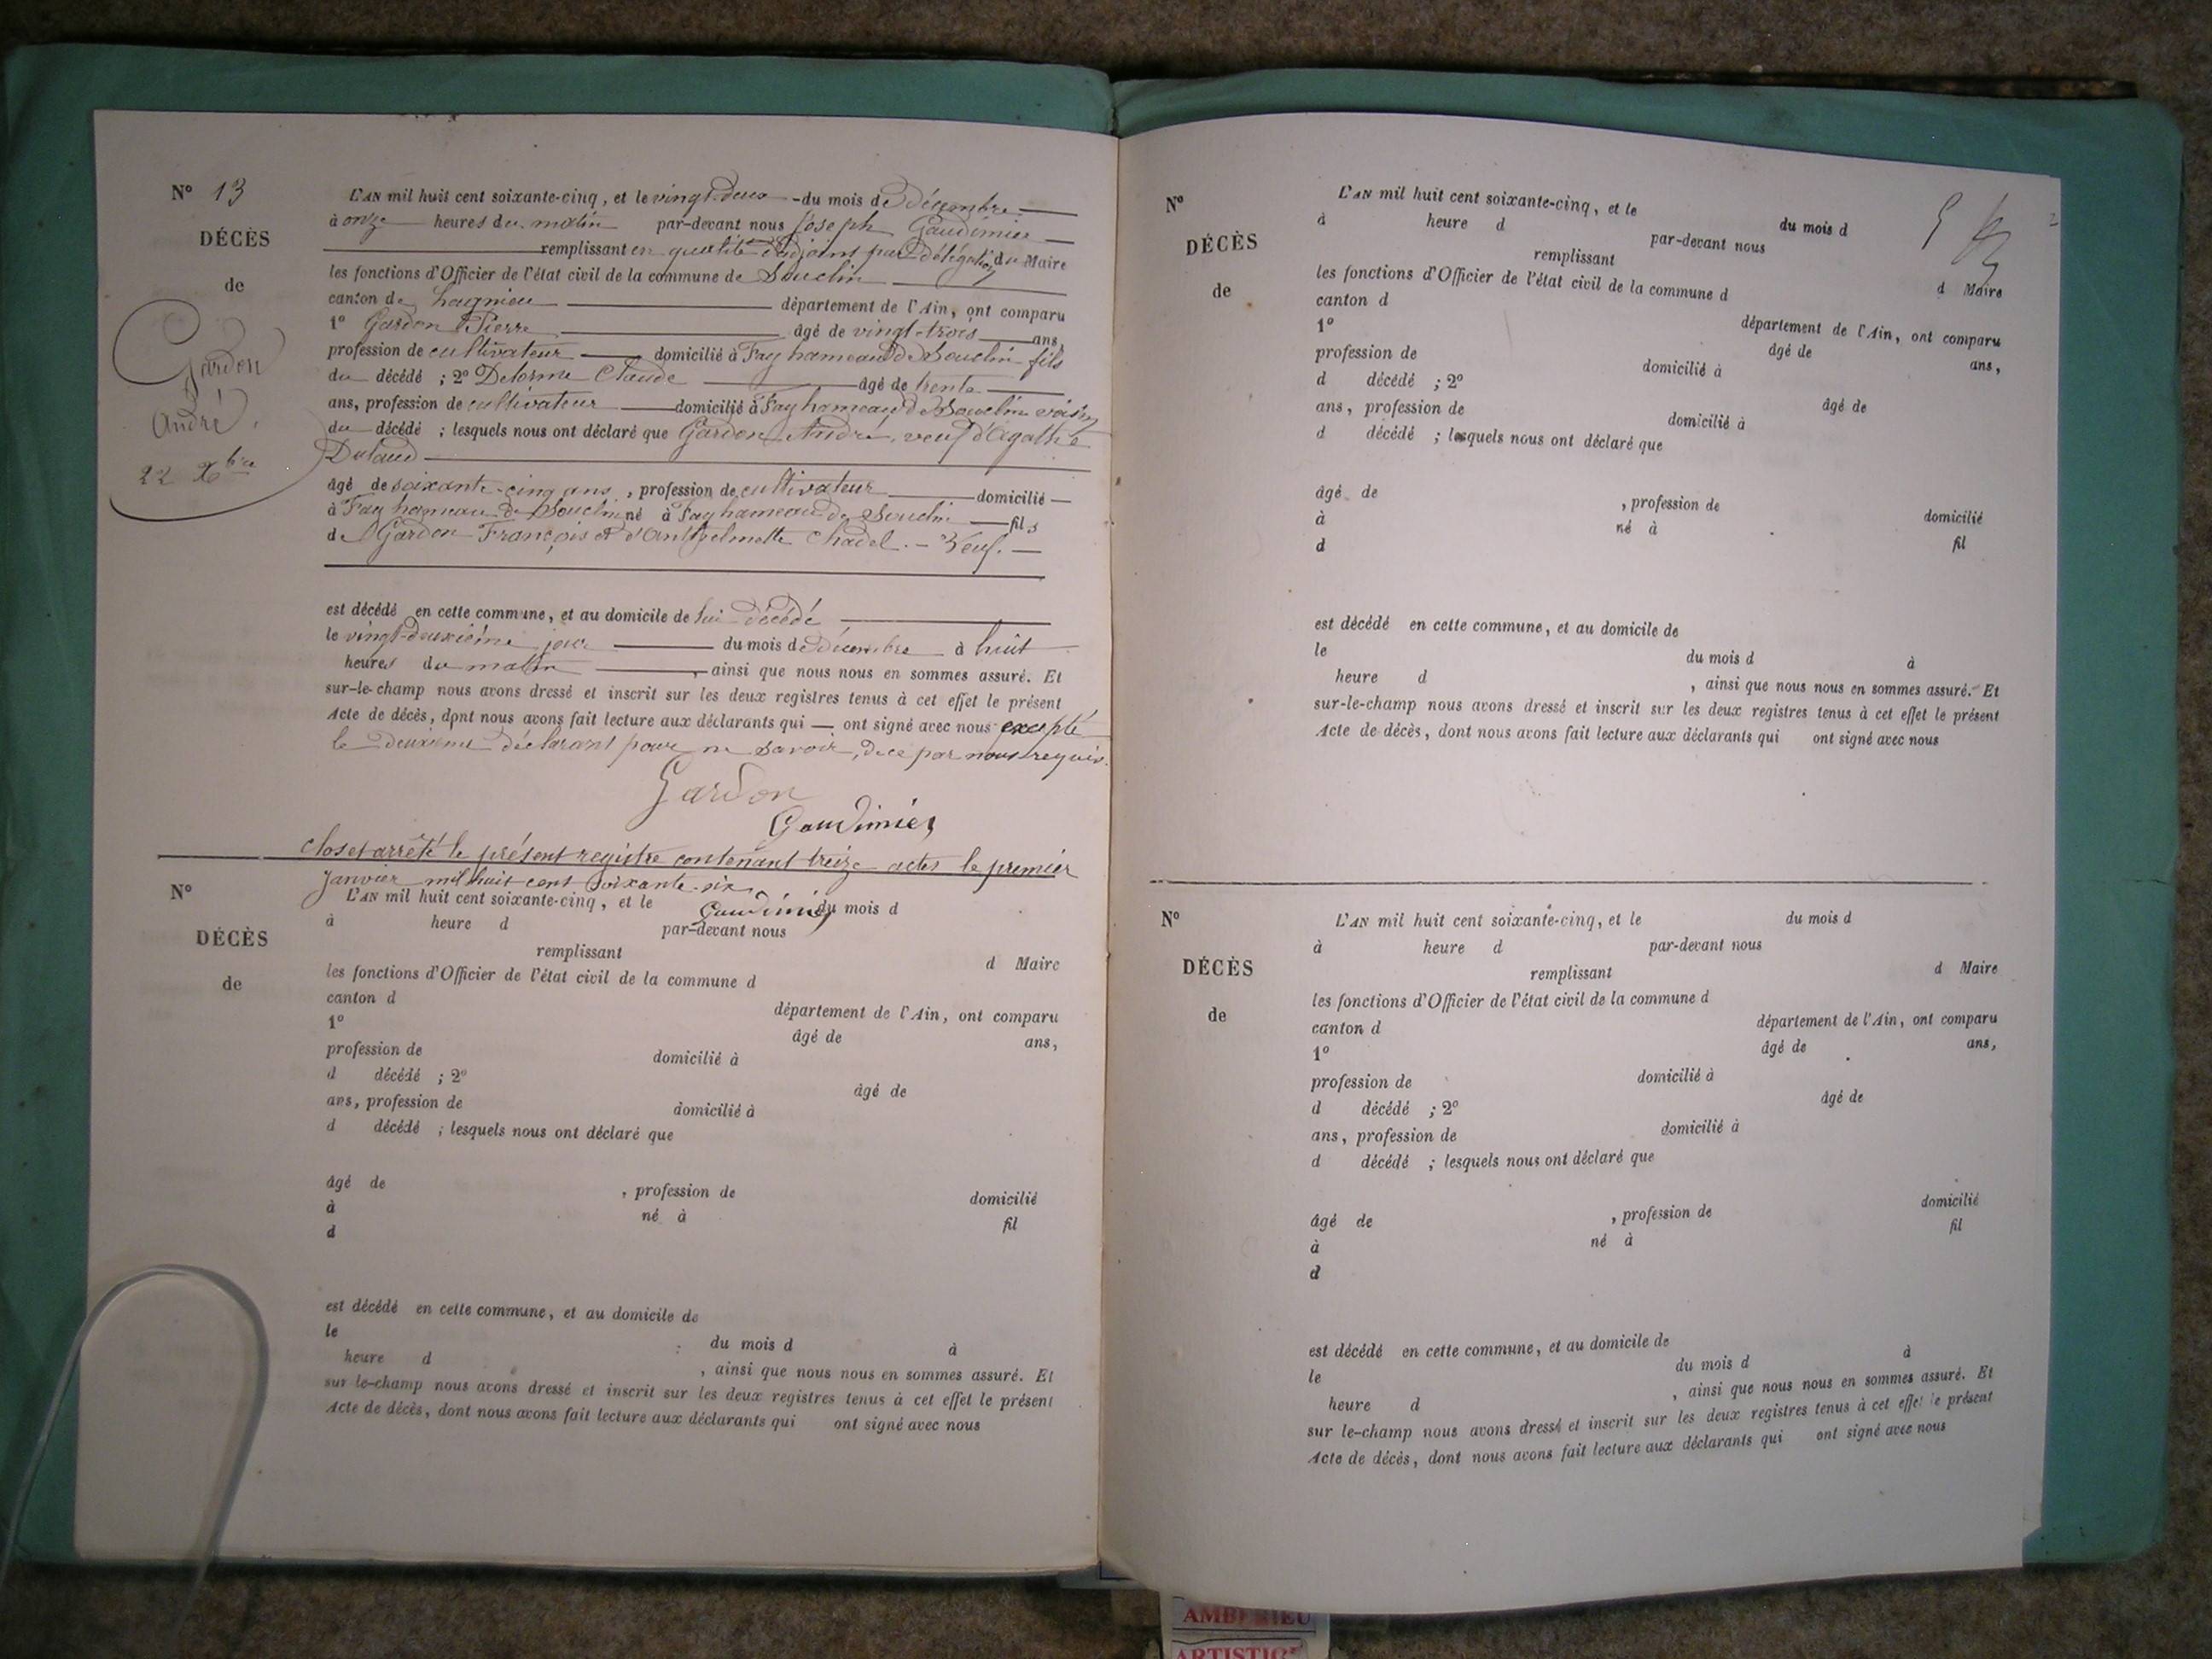 N° 13
DÉCÈS
de
Gardon
André.
22 Xbre
L'AN mil huit cent soixante-cinq, et le vingt-deux du mois de Décembre
à onze heures du matin par-devant nous Joseph Gaudimier
remplissant en qualité d'adjoint par délégation du Maire
les fonctions d'Officier de l'état civil de la commune de Souclin
canton de Lagnieu département de l'Ain, ont comparu
1° Gardon Pierre âgé de vingt-trois ans,
profession de cultivateur domicilié à Fay hameau de Souclin fils
du décédé ; 2° Delorme Claude âgé de trente
ans, profession de cultivateur domicilié à Fay hameau de Souclin voisin
du décédé ; lesquels nous ont déclaré que Gardon André, veuf d'Agathe
âgé de soixante-cinq ans, profession de cultivateur domicilié
à Fay hameau de Souclin né à Fay hameau de Souclin fils
de Gardon François et d'Anthelmette Chadel. - Veuf.
est décédé en cette commune, et au domicile de lui décédé
le vingt-deuxième jour du mois de Décembre à huit
heures du matin, ainsi que nous nous en sommes assuré. Et
sur-le-champ nous avons dressé et inscrit sur les deux registres tenus à cet effet le présent
Acte de décès, dont nous avons fait lecture aux déclarants qui ont signé avec nous excepté
le deuxième déclarant pour ne savoir, de ce par nous requis.
Gardon
Gaudimier
Clos et arrêté le présent registre contenant treize actes le premier
Janvier mil huit cent soixante-six
Gaudimier
N°
DÉCÈS
de
L'AN mil huit cent soixante-cinq, et le du mois d
à heure d par-devant nous
remplissant d Maire
les fonctions d'Officier de l'état civil de la commune d
canton d département de l'Ain, ont comparu
1° âgé de ans,
profession de domicilié à
d décédé ; 2° âgé de
ans, profession de domicilié à
d décédé ; lesquels nous ont déclaré que
âgé de , profession de domicilié
à né à fil
d
est décédé en cette commune, et au domicile de
le du mois d à
heure d , ainsi que nous nous en sommes assuré. Et
sur le-champ nous avons dressé et inscrit sur les deux registres tenus à cet effet le présent
Acte de décès, dont nous avons fait lecture aux déclarants qui ont signé avec nous
N°
DÉCÈS
de
L'AN mil huit cent soixante-cinq, et le du mois d
à heure d par-devant nous
remplissant d Maire
les fonctions d'Officier de l'état civil de la commune d
canton d département de l'Ain, ont comparu
1° âgé de ans,
profession de domicilié à
d décédé ; 2° âgé de
ans, profession de domicilié à
d décédé ; lesquels nous ont déclaré que
âgé de , profession de domicilié
à né à fil
d
est décédé en cette commune, et au domicile de
le du mois d à
heure d , ainsi que nous nous en sommes assuré. Et
sur-le-champ nous avons dressé et inscrit sur les deux registres tenus à cet effet le présent
Acte de décès, dont nous avons fait lecture aux déclarants qui ont signé avec nous
N°
DÉCÈS
de
L'AN mil huit cent soixante-cinq, et le du mois d
à heure d par-devant nous
remplissant d Maire
les fonctions d'Officier de l'état civil de la commune d
canton d département de l'Ain, ont comparu
1° âgé de ans,
profession de domicilié à
d décédé ; 2° âgé de
ans, profession de domicilié à
d décédé ; lesquels nous ont déclaré que
âgé de , profession de domicilié
à né à fil
d
est décédé en cette commune, et au domicile de
le du mois d à
heure d , ainsi que nous nous en sommes assuré. Et
sur le-champ nous avons dressé et inscrit sur les deux registres tenus à cet effet le présent
Acte de décès, dont nous avons fait lecture aux déclarants qui ont signé avec nous
AMBERIEU